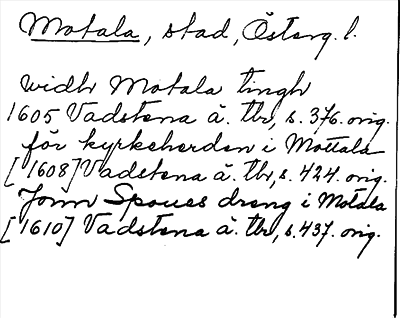 Motala, stad, Österg. l.
widh Motala tingh
1605 Vadstena ä. tbr, s. 376. orig.
för kyrkeherden i Mottala
[1608] Vadstena ä. tbr, s. 424. orig.
Jonn Spoues dreng i Motala
[1610] Vadstena ä. tbr, s. 437. orig.